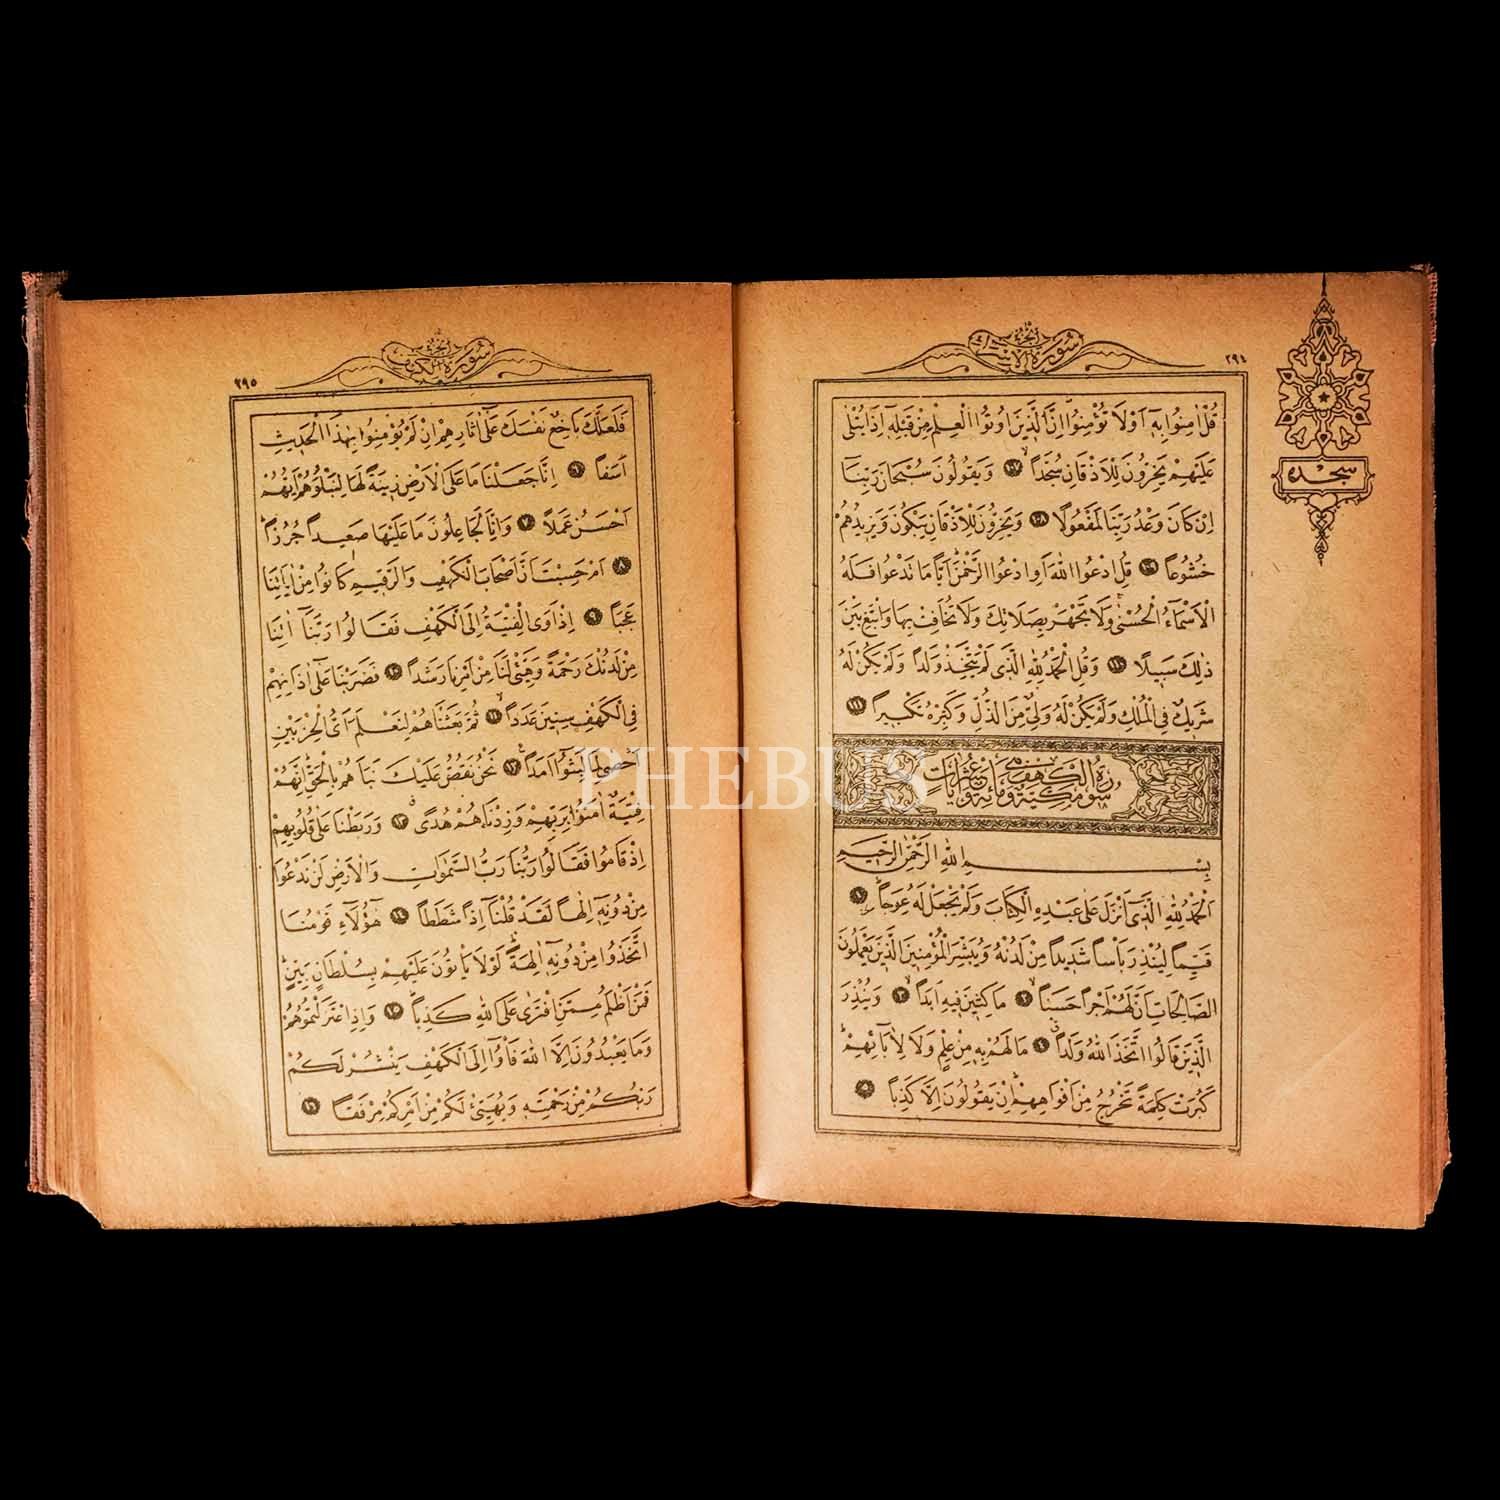 الجزء
سورة الاسراء
٢٩٤
سجده
قُلْ اٰمِنُوا بِهٖٓ اَوْ لَا تُؤْمِنُواۜ اِنَّ الَّذٖينَ اُو۫تُوا الْعِلْمَ مِنْ قَبْلِهٖٓ اِذَا يُتْلٰى
عَلَيْهِمْ يَخِرُّونَ لِلْاَذْقَانِ سُجَّداًۙ ١٠٧ وَيَقُولُونَ سُبْحَانَ رَبِّنَٓا
اِنْ كَانَ وَعْدُ رَبِّنَا لَمَفْعُولاً ١٠٨ وَيَخِرُّونَ لِلْاَذْقَانِ يَبْكُونَ وَيَزٖيدُهُمْ
خُشُوعاً ١٠٩ قُلِ ادْعُوا اللّٰهَ اَوِ ادْعُوا الرَّحْمٰنَۜ اَياًّ مَا تَدْعُوا فَلَهُ
الْاَسْمَٓاءُ الْحُسْنٰىۚ وَلَا تَجْهَرْ بِصَلَاتِكَ وَلَا تُخَافِتْ بِهَا وَابْتَغِ بَيْنَ
ذٰلِكَ سَبٖيلاً ١١٠ وَقُلِ الْحَمْدُ لِلّٰهِ الَّذٖي لَمْ يَتَّخِذْ وَلَداً وَلَمْ يَكُنْ لَهُ
شَرٖيكٌ فِي الْمُلْكِ وَلَمْ يَكُنْ لَهُ وَلِيٌّ مِنَ الذُّلِّ وَكَبِّرْهُ تَكْبٖيراً ١١١
سورة الكهف مكية وهى مائة وعشر آيات
بِسْمِ اللّٰهِ الرَّحْمٰنِ الرَّحٖيمِ
اَلْحَمْدُ لِلّٰهِ الَّذٖٓي اَنْزَلَ عَلٰى عَبْدِهِ الْكِتَابَ وَلَمْ يَجْعَلْ لَهُ عِوَجاًۜ ١
قَيِّماً لِيُنْذِرَ بَأْساً شَدٖيداً مِنْ لَدُنْهُ وَيُبَشِّرَ الْمُؤْمِنٖينَ الَّذٖينَ يَعْمَلُونَ
الصَّالِحَاتِ اَنَّ لَهُمْ اَجْراً حَسَناًۙ ٢ مَاكِثٖينَ فٖيهِ اَبَداًۙ ٣ وَيُنْذِرَ
الَّذٖينَ قَالُوا اتَّخَذَ اللّٰهُ وَلَداً ٤ مَا لَهُمْ بِهٖ مِنْ عِلْمٍ وَلَا لِاٰبَٓائِهِمْۜ
كَبُرَتْ كَلِمَةً تَخْرُجُ مِنْ اَفْوَاهِهِمْۜ اِنْ يَقُولُونَ اِلَّا كَذِباً ٥
الجزء
سورة الكهف
٢٩٥
فَلَعَلَّكَ بَاخِعٌ نَفْسَكَ عَلٰٓى اٰثَارِهِمْ اِنْ لَمْ يُؤْمِنُوا بِهٰذَا الْحَدٖيثِ
اَسَفاً ٦ اِنَّا جَعَلْنَا مَا عَلَى الْاَرْضِ زٖينَةً لَهَا لِنَبْلُوَهُمْ اَيُّهُمْ
اَحْسَنُ عَمَلاً ٧ وَاِنَّا لَجَاعِلُونَ مَا عَلَيْهَا صَعٖيداً جُرُزاًۜ
٨ اَمْ حَسِبْتَ اَنَّ اَصْحَابَ الْكَهْفِ وَالرَّقٖيمِ كَانُوا مِنْ اٰيَاتِنَا
عَجَباً ٩ اِذْ اَوَى الْفِتْيَةُ اِلَى الْكَهْفِ فَقَالُوا رَبَّنَٓا اٰتِنَا
مِنْ لَدُنْكَ رَحْمَةً وَهَيِّئْ لَنَا مِنْ اَمْرِنَا رَشَداً ١٠ فَضَرَبْنَا عَلٰٓى اٰذَانِهِمْ
فِي الْكَهْفِ سِنٖينَ عَدَداًۙ ١١ ثُمَّ بَعَثْنَاهُمْ لِنَعْلَمَ اَيُّ الْحِزْبَيْنِ
اَحْصٰى لِمَا لَبِثُٓوا اَمَداً ١٢ نَحْنُ نَقُصُّ عَلَيْكَ نَبَاَهُمْ بِالْحَقِّۜ اِنَّهُمْ
فِتْيَةٌ اٰمَنُوا بِرَبِّهِمْ وَزِدْنَاهُمْ هُدًىۗ ١٣ وَرَبَطْنَا عَلٰى قُلُوبِهِمْ
اِذْ قَامُوا فَقَالُوا رَبُّنَا رَبُّ السَّمٰوَاتِ وَالْاَرْضِ لَنْ نَدْعُوَا
مِنْ دُونِهٖٓ اِلٰهاً لَقَدْ قُلْنَٓا اِذاً شَطَطاً ١٤ هٰٓؤُ۬لَٓاءِ قَوْمُنَا
اتَّخَذُوا مِنْ دُونِهٖٓ اٰلِهَةًۜ لَوْلَا يَأْتُونَ عَلَيْهِمْ بِسُلْطَانٍ بَيِّنٍۜ
فَمَنْ اَظْلَمُ مِمَّنِ افْتَرٰى عَلَى اللّٰهِ كَذِباًۜ ١٥ وَاِذِ اعْتَزَلْتُمُوهُمْ
وَمَا يَعْبُدُونَ اِلَّا اللّٰهَ فَأْوُٓ۫ا اِلَى الْكَهْفِ يَنْشُرْ لَكُمْ
رَبُّكُمْ مِنْ رَحْمَتِهٖ وَيُهَيِّئْ لَكُمْ مِنْ اَمْرِكُمْ مِرْفَقاً ١٦
PHEBUS